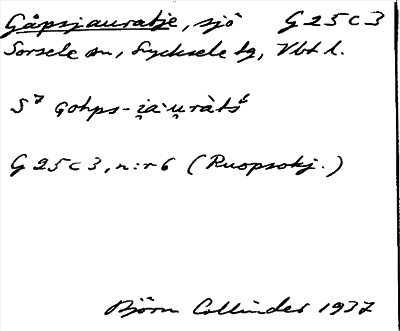 Gåpsjauratje, sjö G 25 c 3
Sorsele sn, Lycksele tg, Vbt l.
G 25 c 3, n:r 6 (Ruopsokj.)
Björn Collinder 1937